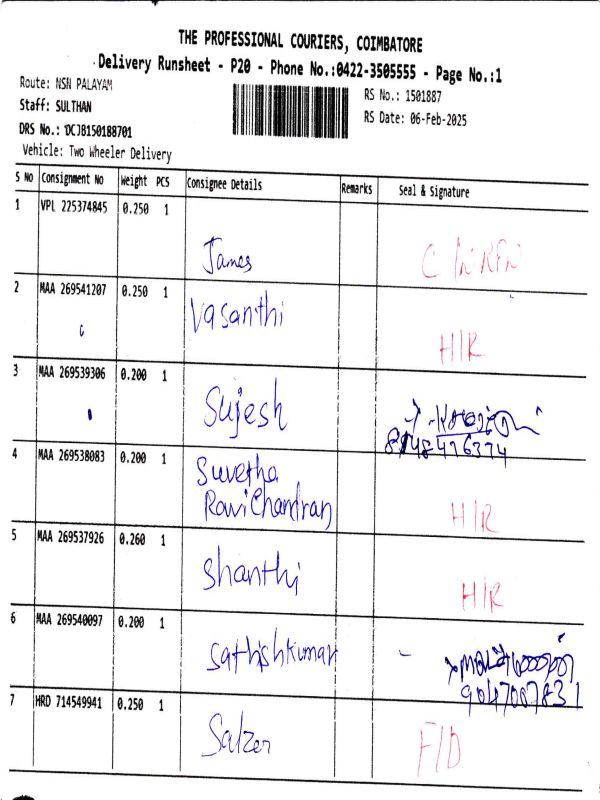 THE PROFESSIONAL COURIERS, COIMBATORE
Delivery Runsheet - P20 - Phone No.:0422-3505555 - Page No.:1
Route: NSN PALAYAM
RS No.: 1501887
Staff: SULTHAN
RS Date: 06-Feb-2025
DRS No.: DCJB150188701
Vehicle: Two Wheeler Delivery
S No Consignment No Weight PCS Consignee Details Remarks Seal & Signature
1 VPL 225374845 0.250 1
James
2 MAA 269541207 0.250 1
Vasanthi
H/R
3 MAA 269539306 0.200 1
Sujesh
4 MAA 269538083 0.200 1
Suvetha
RaviChandran H/R
5 MAA 269537926 0.260 1
Shanthi H/R
6 MAA 269540097 0.200 1
Sathishkumar
7 HRD 714549941 0.250 1
Salzer F/D